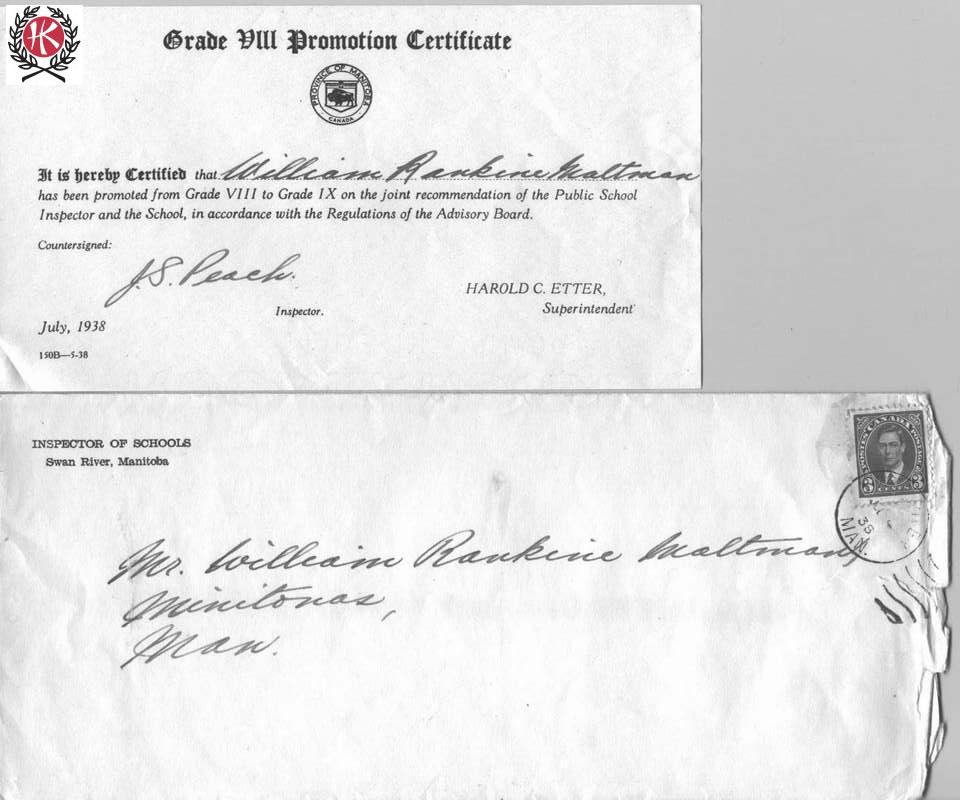 HK
Grade VIII Promotion Certificate
PROVINCE OF MANITOBA
CANADA
It is hereby Certified that William Rankine Maltman
has been promoted from Grade VIII to Grade IX on the joint recommendation of the Public School
Inspector and the School, in accordance with the Regulations of the Advisory Board.
Countersigned:
J.S. Peach.
HAROLD C. ETTER,
Inspector.
Superintendent
July, 1938
150B—5-38
INSPECTOR OF SCHOOLS
Swan River, Manitoba
POSTES CANADA POSTAGE
3 CENTS 3
38
MAN.
Mr. William Rankine Maltman,
Minitonas,
Man.